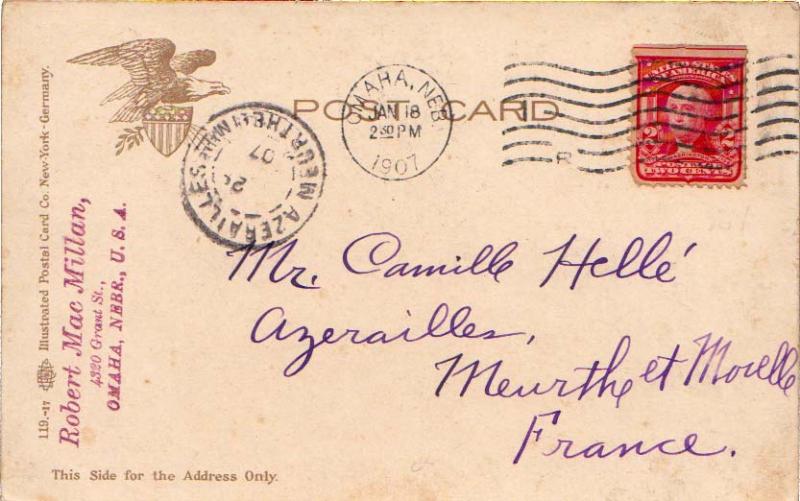 POST CARD
OMAHA, NEBR.
JAN 18
2 30 PM
1907
UNITED STATES
OF AMERICA
2 2
POSTAGE
TWO CENTS
R
AZERAILLES
MEURTHE
07
Mr. Camille Hellé
Azerailles,
Meurthe et Moselle
France.
119.-17 Illustrated Postal Card Co. New-York - Germany.
Robert Mac Millan,
4320 Grant St.,
OMAHA, NEBR., U. S. A.
This Side for the Address Only.